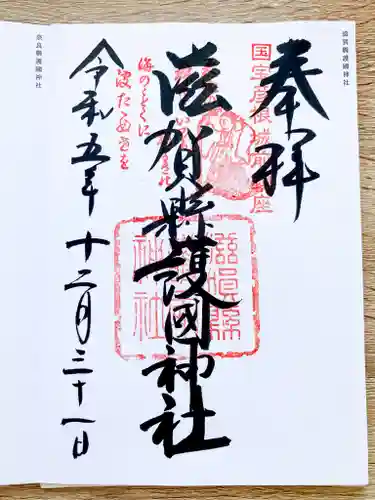 滋賀縣護國神社
奉拝
国宝彦根城前鎮座
滋賀縣護國神社
滋賀縣
神社
海のごとくに
令和五年十二月三十一日
奈良縣護國神社